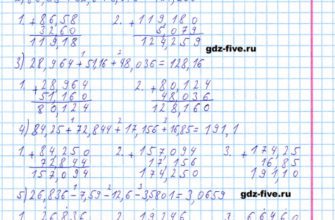 1. + 86,58 2. + 119,180
32,60 5,079
119,18 124,259
gdz-five.ru
3) 28,964 + 51,16 + 48,036 = 128,16
1. + 28,964 2. + 80,124
51,160 48,036
80,124 174,250
4) 84,25 + 72,844 + 17,156 + 16,85 = 191,1
1. + 84,250 2. + 157,094 3. + 174,25
72,844 17,156 16,85
157,094 174,250 191,10
5) 26,836 - 7,59 - 12,6 - 3,5801 = 3,0659
gdz-five.ru
1. 26,836 2. 19,246 3. 6,6460